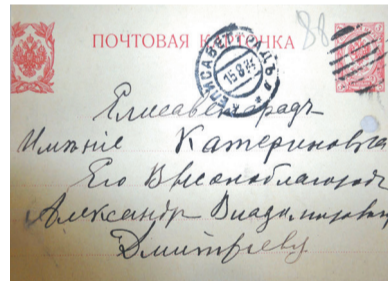 ПОЧТОВАЯ КАРТОЧКА
88
ЕЛИСАВЕТГРАДЪ
Елисаветградъ
Имѣніе Катериновка
Его Высокоблагород
Александр Владимирович
Дмитріеву